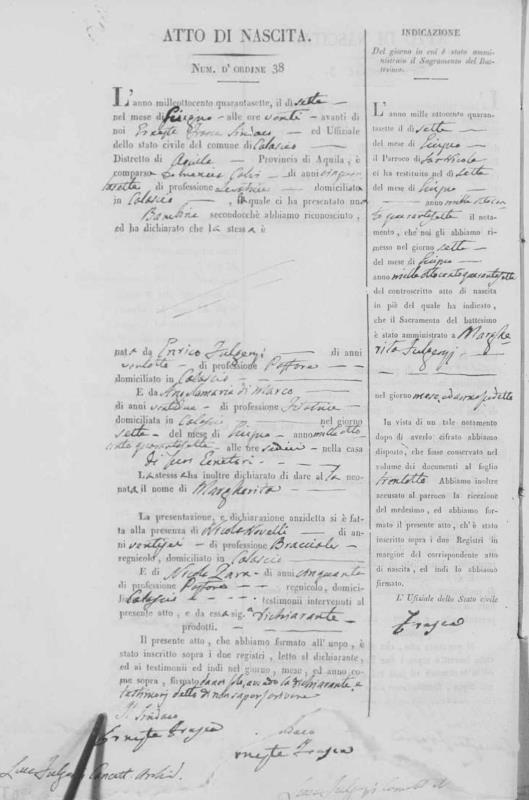 ATTO DI NASCITA.
NUM. D'ORDINE 38
L'anno millecottocento quarantasette, il dì sette
nel mese di Giugno alle ore venti avanti di
noi Erneste Sindaco ed Uffiziale
dello stato civile del comune di Calascio
Distretto di Aquila Provincia di Aquila, è
comparsa di anni
di professione domiciliata
in Calascio quale ci ha presentato una
Bambina secondochè abbiamo riconosciuto,
ed ha dichiarato che la stessa è
nata da Enrico Fulgenzj di anni
ventotto di professione Pastore
domiciliato in Calascio
E da Annamaria di Marco
di anni di professione Filatrice
domiciliata in Calascio nel giorno
sette del mese di Giugno anno mille otto
cento quarantasette alle ore sedici nella casa
di
La stessa ha inoltre dichiarato di dare alla neo-
nata il nome di Margherita
La presentazione, e dichiarazione anzidetta si è fat-
ta alla presenza di Nicola Novelli di an-
ni ventisei di professione Bracciale
regnicolo, domiciliato in Calascio
E di Nicola Zara di anni cinquanta
di professione Pastore regnicolo, domici-
liato Calascio testimonii intervenuti al
presente atto, e da essa sig.a dichiarante
prodotti.
Il presente atto, che abbiamo formato all'uopo, è
stato inscritto sopra i due registri, letto al dichiarante,
ed ai testimonii ed indi nel giorno, mese, ed anno co-
me sopra, firmato da noi solo, avendo la dichiarante, e
testimonj detto di non saper scrivere
Il Sindaco
Erneste
Sindaco
Erneste
Luca Fulgenzj Cancell. Archiv.
INDICAZIONE
Del giorno in cui è stato ammi-
nistrato il Sacramento del Bat-
tesimo.
L'anno mille ottocento quaran-
tasette il dì sette
del mese di Giugno
il Parroco di San Nicola
ci ha restituito nel dì sette
del mese di Giugno
anno mille ottocen
to quarantasette il nota-
mento, che noi gli abbiamo ri-
messo nel giorno sette
del mese di Giugno
anno mille otto cento quarantasette
del controscritto atto di nascita
in piè del quale ha indicato,
che il Sacramento del battesimo
è stato amministrato a Marghe
rita Fulgenzj
nel giorno mese, ed anno sudetto
In vista di un tale notamento
dopo di averlo cifrato abbiamo
disposto, che fosse conservato nel
volume dei documenti al foglio
trentotto Abbiamo inoltre
accusato al parroco la ricezione
del medesimo, ed abbiamo for-
mato il presente atto, ch'è stato
inscritto sopra i due Registri in
margine del corrispondente atto
di nascita, ed indi lo abbiamo
firmato.
L'Ufiziale dello Stato civile